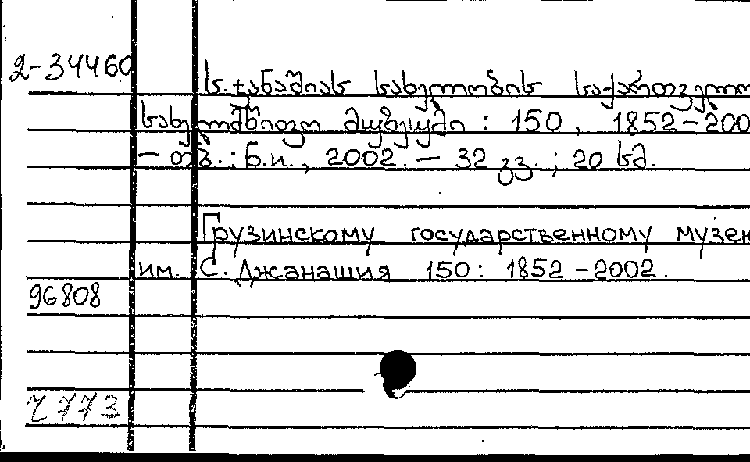 2-34460
ს. ჯანაშიას სახელობის საქართველო
სახელმწიფო მუზეუმი : 150, 1852–200
– თბ. : ნ.ი., 2002. – 32 გვ. ; 20 სმ.
Грузинскому государственному музею
им. С. Джанашия 150: 1852–2002.
96808
7773